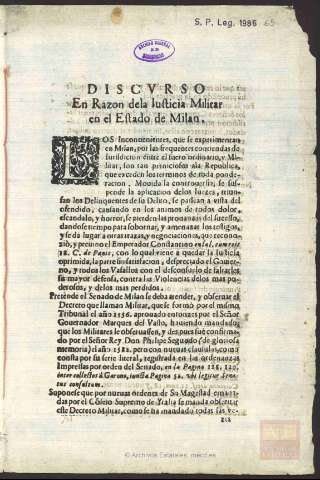 S. P. Leg. 1986 65
DISCVRSO
En Razon dela Iusticia Militar
en el Estado de Milan.
LOS Inconuenientes, que se experimentan
en Milan, por las frequentes contiendas de
Iurisdicion entre el fuero ordinario, y Mi-
litar, son tan perniciosos ala Republica,
que exceden los terminos de toda ponde-
racion. Mouida la controuersia, se sus-
pende la aplicacion delos Iuezes, triun-
fan los Delinquentes de su Delito, se passean a vista del
ofendido, causando en los animos de todos dolor,
escandalo, y horror, se pierden las prouanças del sucesso,
dandose tiempo para sobornar, y amenazar los testigos,
y se da lugar a otras trazas, y negociaciones, que recono-
ciò, y preuino el Emperador Constantino
18. C. de Penis, con lo qual viene a quedar la Iusticia
oprimida, la parte sin satisfacion, despreciado el Gouier-
no, y todos los Vasallos con el desconsuelo de faltarles
su mayor defensa, contra las Violencias delos mas po-
derosos, y delos mas perdidos.
Pretende el Senado de Milan se deba atender, y obseruar el
Decreto que llaman Militar, que se formò por el mismo
Tribunal el año 1556. aprouado entonces por el Señor
Gouernador Marques del Vasto, hauiendo mandado,
que los Militares le obseruassen, y despues fue confirma-
do por el Señor Rey Don Phelipe Segundo (de gloriosa
memoria) el año 1582. pero con nueuas clausulas, como
consta por su serie literal, registrada en las ordenanzas
Impressas por orden del Senado, en la Pagina 128. 129.
inter collectos à Garono, iuncta Pagina 92. vbi legitur Sena-
tus consultum.
Suponese que por nueuas ordenes de Su Magestad emana-
das por el Còsejo Supremo de Italia se manda obseruar
este Decreto Militar, como se ha mandado todas las ve-
© Archivos Estatales, mecd.es